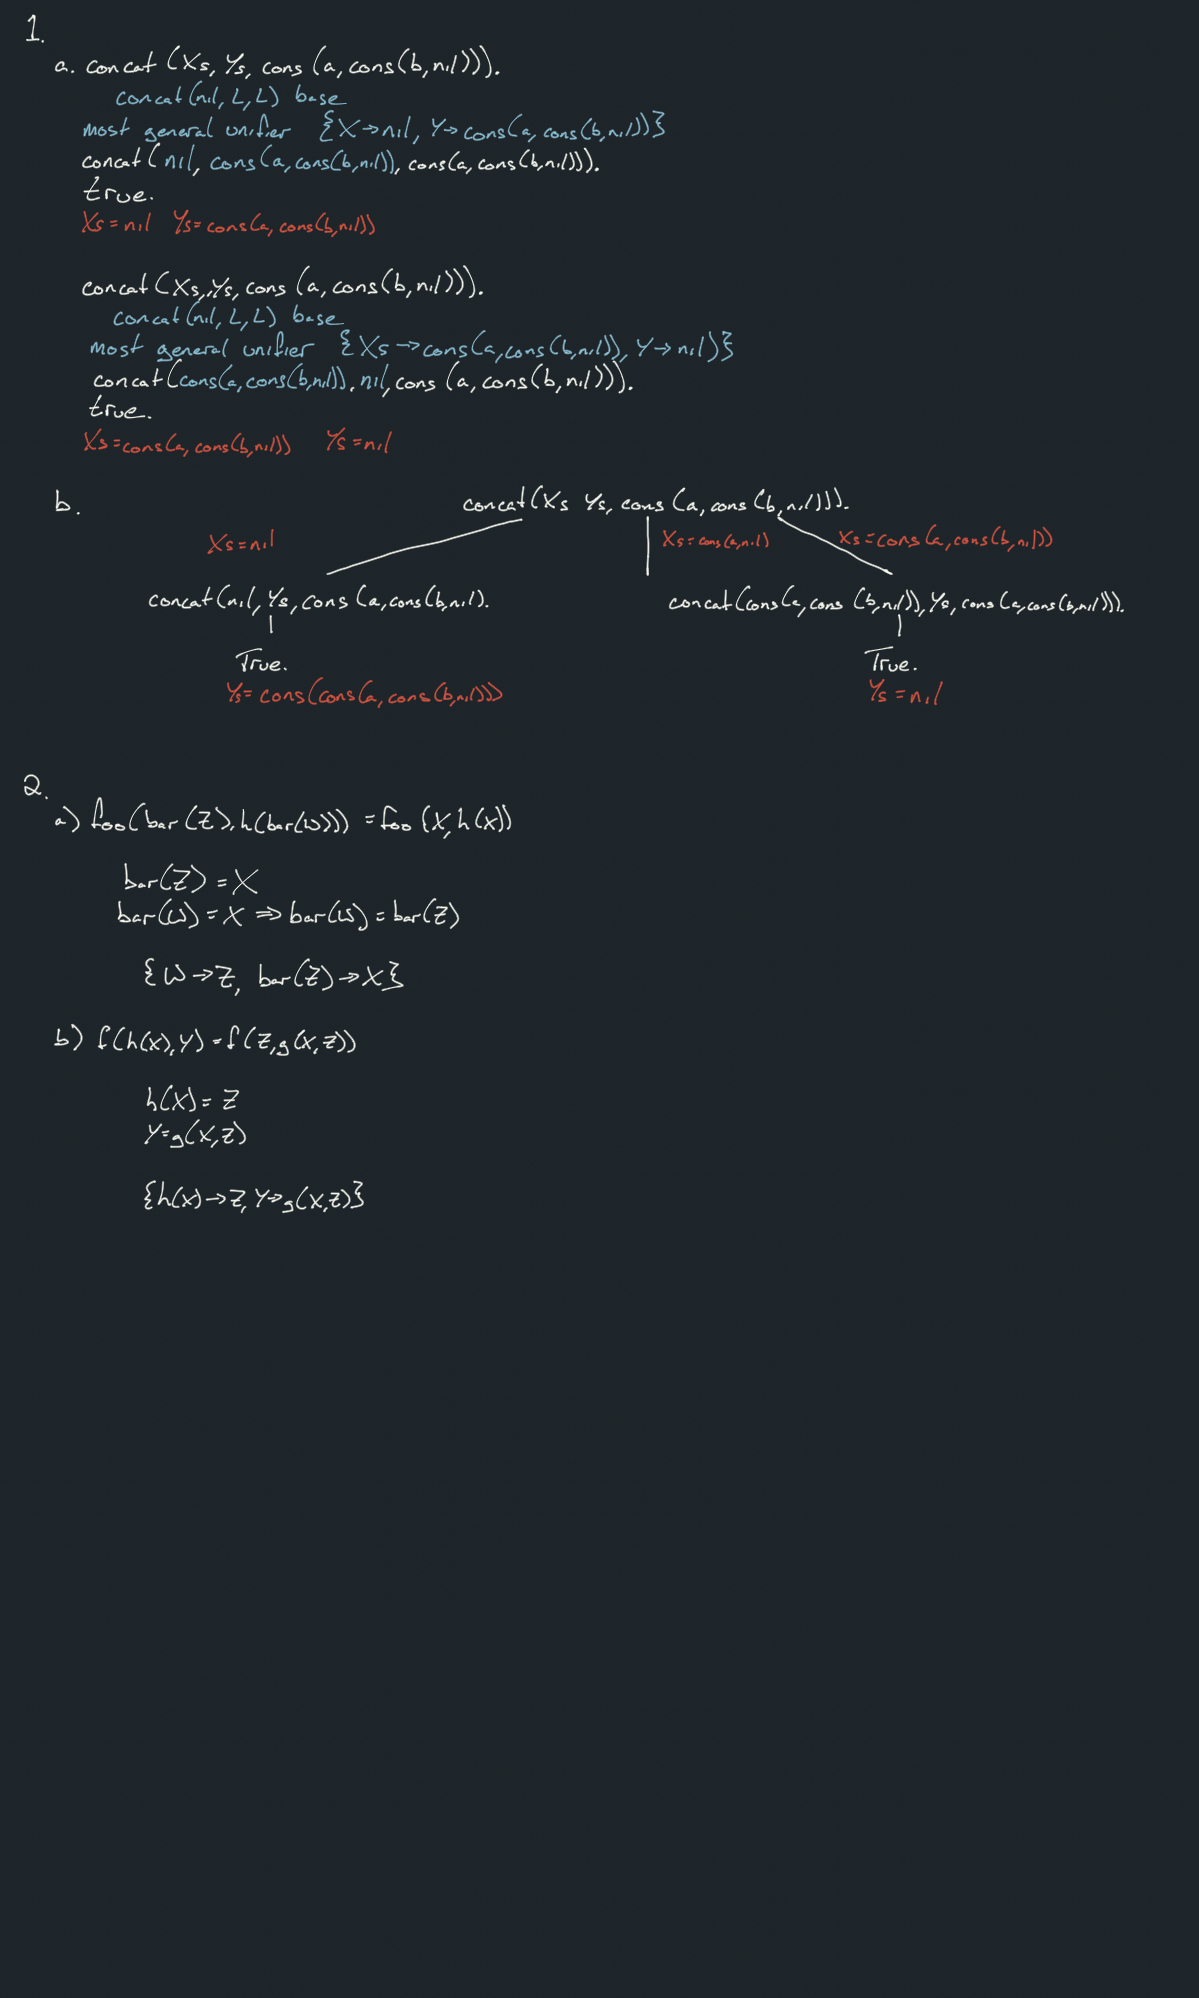 1.
a. concat (Xs, Ys, cons (a, cons(b,nil))).
concat(nil, L, L) base
most general unifier {X→nil, Y→cons(a, cons(b,nil))}
concat(nil, cons(a,cons(b,nil)), cons(a,cons(b,nil))).
true.
Xs=nil Ys=cons(a, cons(b,nil))
concat(Xs,Ys, cons (a, cons(b,nil))).
concat(nil, L, L) base
most general unifier {Xs→cons(a,cons(b,nil)), Y→nil)}
concat(cons(a,cons(b,nil)), nil, cons (a, cons(b,nil))).
true.
Xs=cons(a, cons(b,nil)) Ys=nil
b. concat(Xs Ys, cons (a, cons (b,nil))).
Xs=nil Xs=cons(a,nil) Xs=cons(a,cons(b,nil))
concat(nil, Ys, cons (a,cons(b,nil). concat(cons(a,cons (b,nil)), Ys, cons (a,cons(b,nil))).
True. True.
Ys=cons(cons(a, cons(b,nil))) Ys=nil
2.
a) foo(bar(Z),h(bar(W))) = foo (X,h(x))
bar(Z) = X
bar(W) = X ⇒ bar(W) = bar(Z)
{W→Z, bar(Z)→X}
b) f(h(x),Y) = f(Z,g(X,Z))
h(X) = Z
Y=g(X,Z)
{h(x)→Z, Y→g(X,Z)}